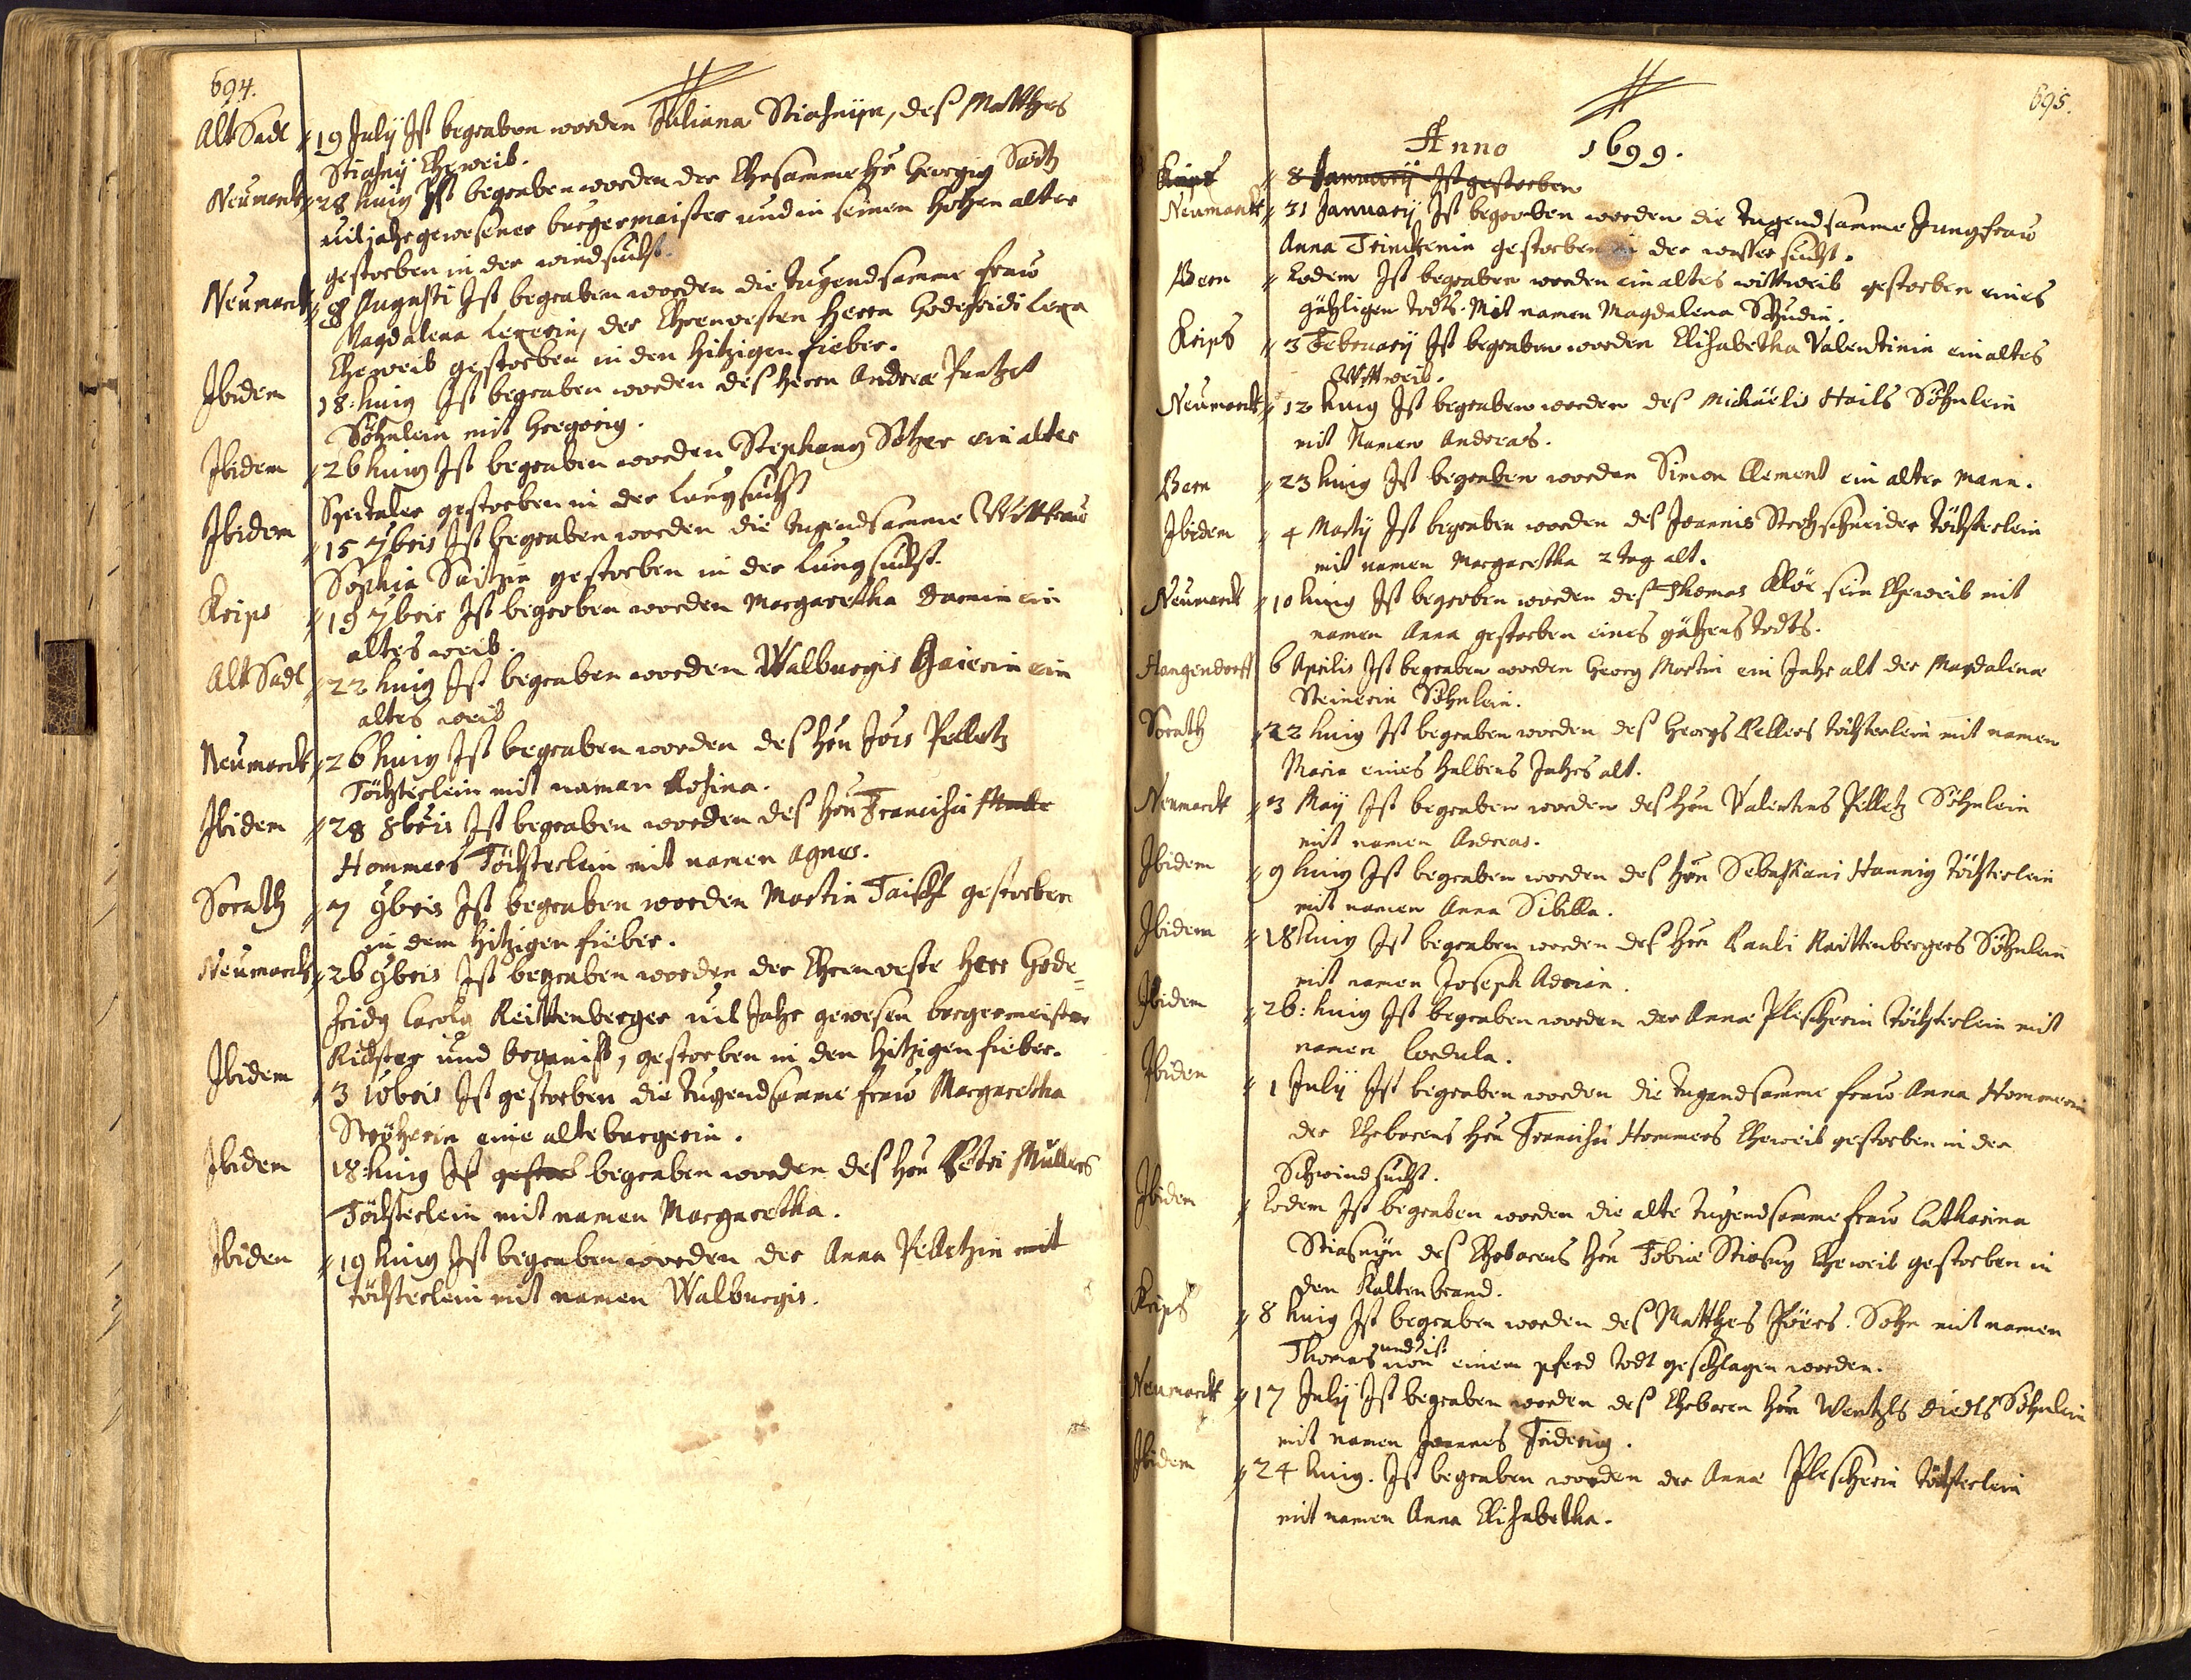 694.
Alt Sadl // 19 July Ist begraben worden Juliana Stiasnyin, deß Matthes
Stiasny Eheweib.
Neumarckt // 28 huig Ist begraben worden der Ehrsamme Hr Georgig Saitz
vil jahr gewesener burgermaister und in seinen hohen alter
gestorben in der windsucht.
Neumarckt // 8 Augusti Ist begraben worden die tugendsamme frauw
Magdalena Lexerin, der Ehrenvesten Herrn Godefridi Lexa
Eheweib gestorben in den hitzigen fieber.
Ibidem 18: huig Ist begraben worden deß Herrn Andreæ
Söhnlein mit Gregorig.
Ibidem // 26 huig Ist begraben worden Stephang Söhrer ein alter
Spitaler gestorben in der Lungsucht
Ibidem // 15 7bris Ist begraben worden die tugendsamme Wittfrauw
Sophia Saitzin gestorben in der Lungsucht.
Krips // 19 7bris Ist begraben worden Margaretha Damin ein
altes weib.
Alt Sadl // 22 huig Ist begraben worden Walburgis Haierin ein
altes weib
Neumarckt // 26 huig Ist begraben worden deß Hrn Jois Pelletz
Töchterlein mit namen Rosina.
Ibidem // 28 8bris Ist begraben worden deß Hrn Francisci
Hommers Töchterlein mit namen Agnes.
Sorath // 7 9bris Ist begraben worden Martin Taischl gestorben
in dem hitzigen fieber.
Neumarckt // 26 9bris Ist begraben worden der Ehrenveste Herr Gode=
fridg Carolg Reittenberger vil Jahr gewesen burgermeister
Richter und organist, gestorben in den hitzigen fieber.
Ibidem // 3 10bris Ist gestorben die tugendsamme frauw Margaretha
Ströherin eine alte burgerin.
Ibidem 18: huig Ist gestorb begraben worden deß Hrn Petri Müllers
Töchterlein mit namen Margaretha.
Ibiden // 19 huig Ist begraben worden der Anna Pelletzin mit
töchterlein mit namen Walburgis.
695.
Anno 1699.
Krips // 8 January Ist gestorben
Neumarckt // 31 January Ist begraben worden die tugendsamme Jungfrauw
Anna Trinckenin gestorben in der wassersucht.
Bern // Eodem Ist begraben worden ein altes wittweib gestorben eines
gähligen todts. Mit namen Magdalena Schudin.
Krips // 3 February Ist begraben worden Elisabetha Valentinin ein altes
Wittweib.
Neumarckt // 12 huig Ist begraben worden deß Michäelis Hails Söhnlein
mit Namen Andreas.
Bern // 23 huig Ist begraben worden Simon Clement ein alter mann.
Ibidem // 4 Marty Ist begraben worden deß Joannis Strohschneider töchterlein
mit namen Margaretha 2 tag alt.
Neumarckt // 10 huig Ist begraben worden deß Thomas Klör sein Eheweib mit
namen Anna gestorben eines gähens todts.
Hangendorff 6 Aprilis Ist begraben worden Georg Martin ein Jahr alt der Magdalena
Steinerin Söhnlein.
Sorath // 22 huig Ist begraben worden deß Georgs Kellers töchterlein mit namen
Maria eines halbens Jahrs alt.
Neumarckt // 3 May Ist begraben worden deß Hrn Valentins Pelletz Söhnlein
mit namen Andreas.
Ibidem // 9 huig Ist begraben worden deß Hrn Sebastiani Hannig töchterlein
mit namen Anna Sibilla.
Ibidem // 18 huig Ist begraben worden deß Hrn Pauli Raittenbergers Söhnlein
mit namen Joseph Adrian.
Ibidem // 26: huig Ist begraben worden der Annæ Plescherin töchterlein mit
namen Cordula.
Ibiden // 1 July Ist begraben worden die tugendsamme frauw Anna Hommerin
der Ehrbarens Hrn Francisci Hommers Eheweib gestorben in der
Schwindsucht.
Ibidem // Eodem Ist begraben worden die alte tugendsamme frauw Catharina
Stiasnyn deß Ehrbarens Hrn Tobiæ Stiasny Eheweib gestorben in
den Kaltenbrand.
Krips // 8 huig Ist begraben worden deß Matthes Sohn mit namen
Thomas und ist von einem pferd todt geschlagen worden.
Neumarckt // 17 July Ist begraben worden deß Ehrbaren Hrn Wentzls Diedls Söhnlein
mit namen Joannes Friderig.
Ibidem // 24 huig. Ist begraben worden der Annæ Plescherin töchterlein
mit namen Anna Elisabetha.